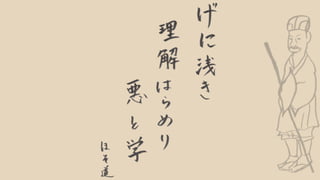 げに浅き
理解はらめり
悪と学
ほそ道